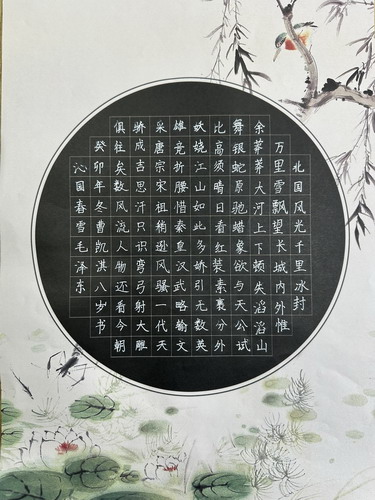 北国风光千里冰封
万里雪飘望长城内外惟
余莽莽大河上下顿失滔滔山
舞银蛇原驰蜡象欲与天公试
比高须晴日看红装素裹分外
妖娆江山如此多娇引无数英
雄竞折腰惜秦皇汉武略输文
采唐宗宋祖稍逊风骚一代天
骄成吉思汗只识弯弓射大雕
俱往矣数风流人物还看今朝
癸卯年冬曹凯淇八岁书
沁园春雪毛泽东